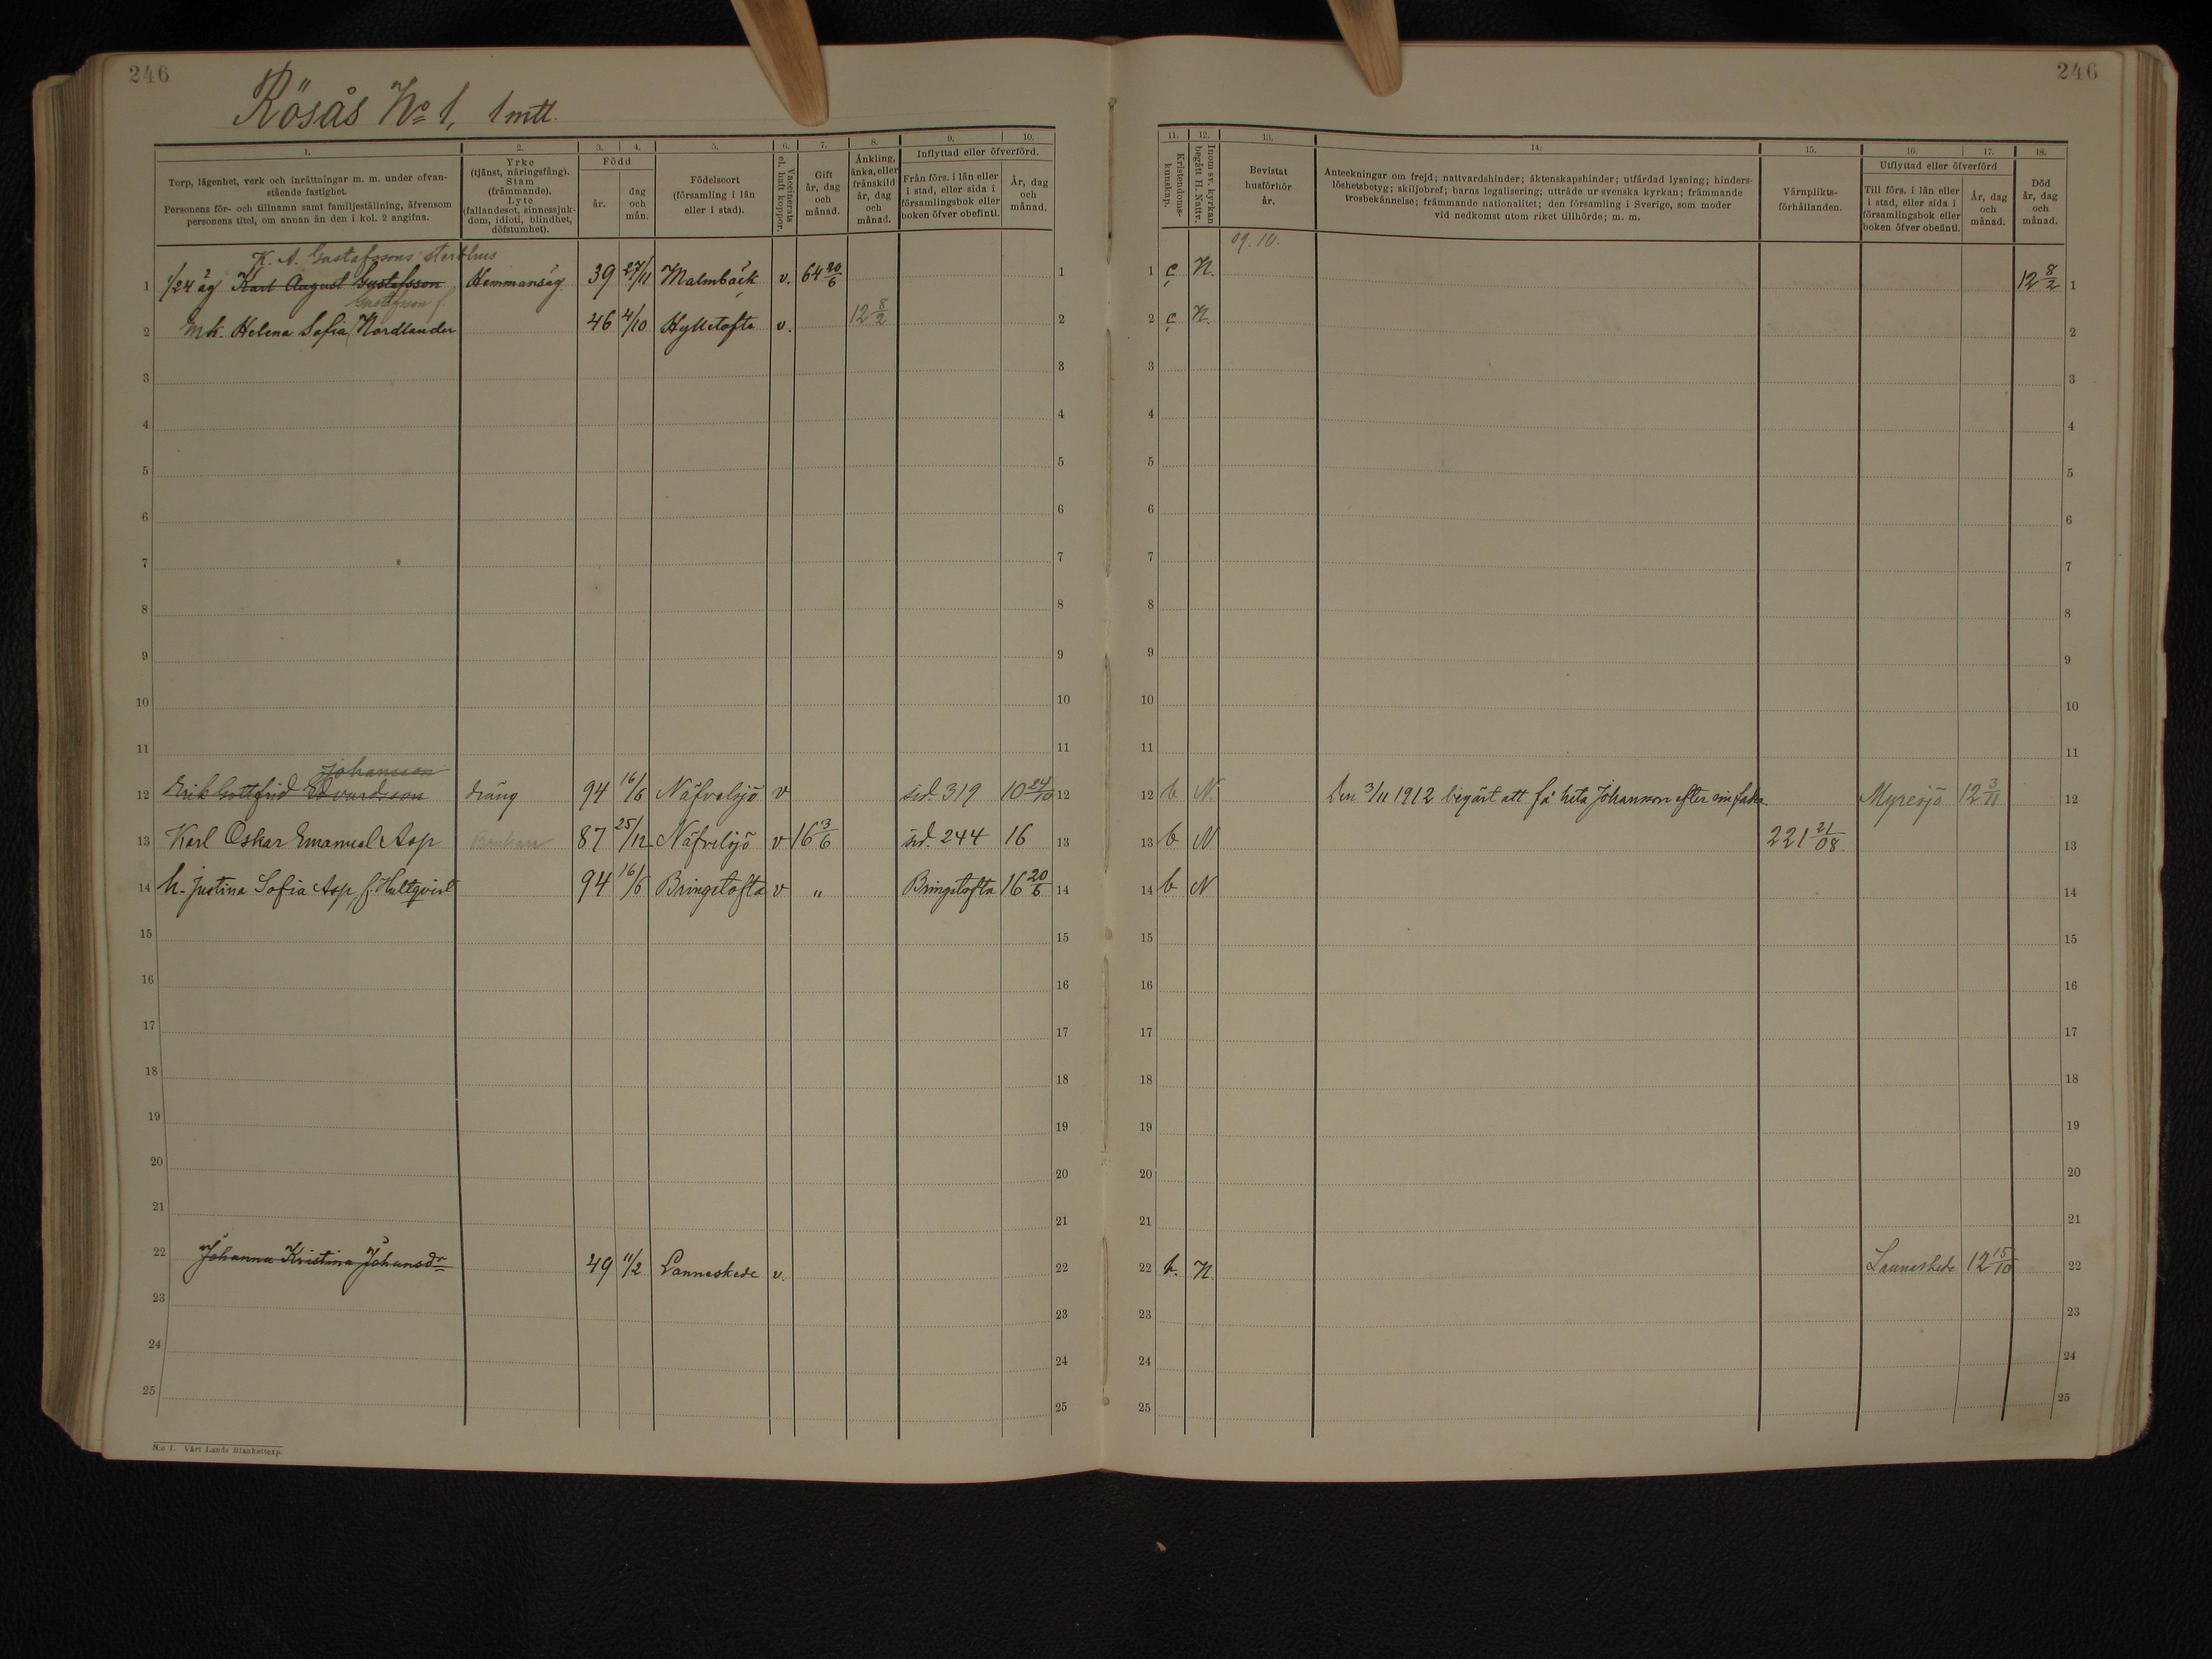 246
Rösås No 1, 1 mtl.
1.
2.
3.
4.
5.
6.
7.
8.
9.
10.
Torp, lägenhet, verk och inrättningar m. m. under ofvan-
stående fastighet.
Personens för- och tillnamn samt familjeställning, äfvensom
personens titel, om annan än den i kol. 2 angifna.
Yrke
(tjänst, näringsfång).
Stam
(främmande).
Lyte
(fallandesot, sinnessjuk-
dom, idioti, blindhet,
döfstumhet).
Född
år.
dag
och
mån.
Födelseort
(församling i län
eller i stad).
Vaccinerats
el. haft koppor.
Gift
år, dag
och
månad.
Änkling,
änka, eller
frånskild
år, dag
och
månad.
Inflyttad eller öfverförd.
Från förs. i län eller
i stad, eller sida i
församlingsbok eller
boken öfver obefintl.
År, dag
och
månad.
K. A. Gustafssons sterbhus
1 1/24 äg Karl August Gustafsson Hemmansäg. 39 27/11 Malmbäck v. 64 20/6 1
Gustafsson f.
2 Mh. Helena Sofia Nordlander 46 4/10 Hylletofta v. 12 8/2 2
3 3
4 4
5 5
6 6
7 7
8 8
9 9
10 10
11 11
Johansson
12 Erik Gottfrid Edvardsson dräng 94 16/6 Näfvelsjö v sid. 319 10 24/10 12
13 Karl Oskar Emanuel Asp 87 25/12 Näfvelsjö v 16 3/6 sid. 244 16 13
14 h. Justina Sofia Asp, f. Hultqvist 94 16/6 Bringetofta v " Bringetofta 16 20/6 14
15 15
16 16
17 17
18 18
19 19
20 20
21 21
22 Johanna Kristina Johansdr 49 11/2 Lannaskede v. 22
23 23
24 24
25 25
N:o 1. Vårt Lands Blankettexp.
246
11.
12.
13.
14.
15.
16.
17.
18.
Kristendoms-
kunskap.
Inom sv. kyrkan
begått H. Nattv.
Bevistat
husförhör
år.
Anteckningar om frejd; nattvardshinder; äktenskapshinder; utfärdad lysning; hinders-
löshetsbetyg; skiljobref; barns legalisering; utträde ur svenska kyrkan; främmande
trosbekännelse; främmande nationalitet; den församling i Sverige, som moder
vid nedkomst utom riket tillhörde; m. m.
Värnplikts-
förhållanden.
Utflyttad eller öfverförd
Till förs. i län eller
i stad, eller sida i
församlingsbok eller
boken öfver obefintl.
År, dag
och
månad.
Död
år, dag
och
månad.
09. 10.
1 c N. 12 8/2 1
2 c N. 2
3 3
4 4
5 5
6 6
7 7
8 8
9 9
10 10
11 11
12 b N. Den 3/11 1912 begärt att få heta Johansson efter sin fader. Myresjö 12 3/11 12
13 b N 221 21/08 13
14 b N 14
15 15
16 16
17 17
18 18
19 19
20 20
21 21
22 b. N. Lannaskede 12 15/10 22
23 23
24 24
25 25